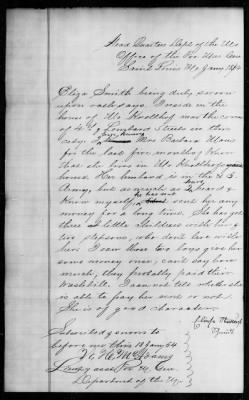 Head Quarters Dept of the Mo
Office of the Pro. Mar. Gen
Saint Louis Mo Jany 1864
Eliza Smith being duly sworn
upon oath says. I reside in the
house of Mr Krolthof near the corner
of 4th & Lombard Streets in this
city. I know Mrs Barbara Maus
for the last few months, When
that she lives in Mr Krolthofs
house. Her husband is in the U.S.
Army, but as much as I heard &
know myself he has not sent her any
money for a long time. She has got
three little children with her &
two stepsons, who don't live with
her. I seen these two boys give her
some money once, can't say how
much, they probably paid their
washbill. I can not tell whether she
is able to pay her rent or not.
She is of good character.
Subscribed & sworn to
before me this 13 Jany 64
Smith
Lt & asst Pro. M. Gen.
Department of the Mo